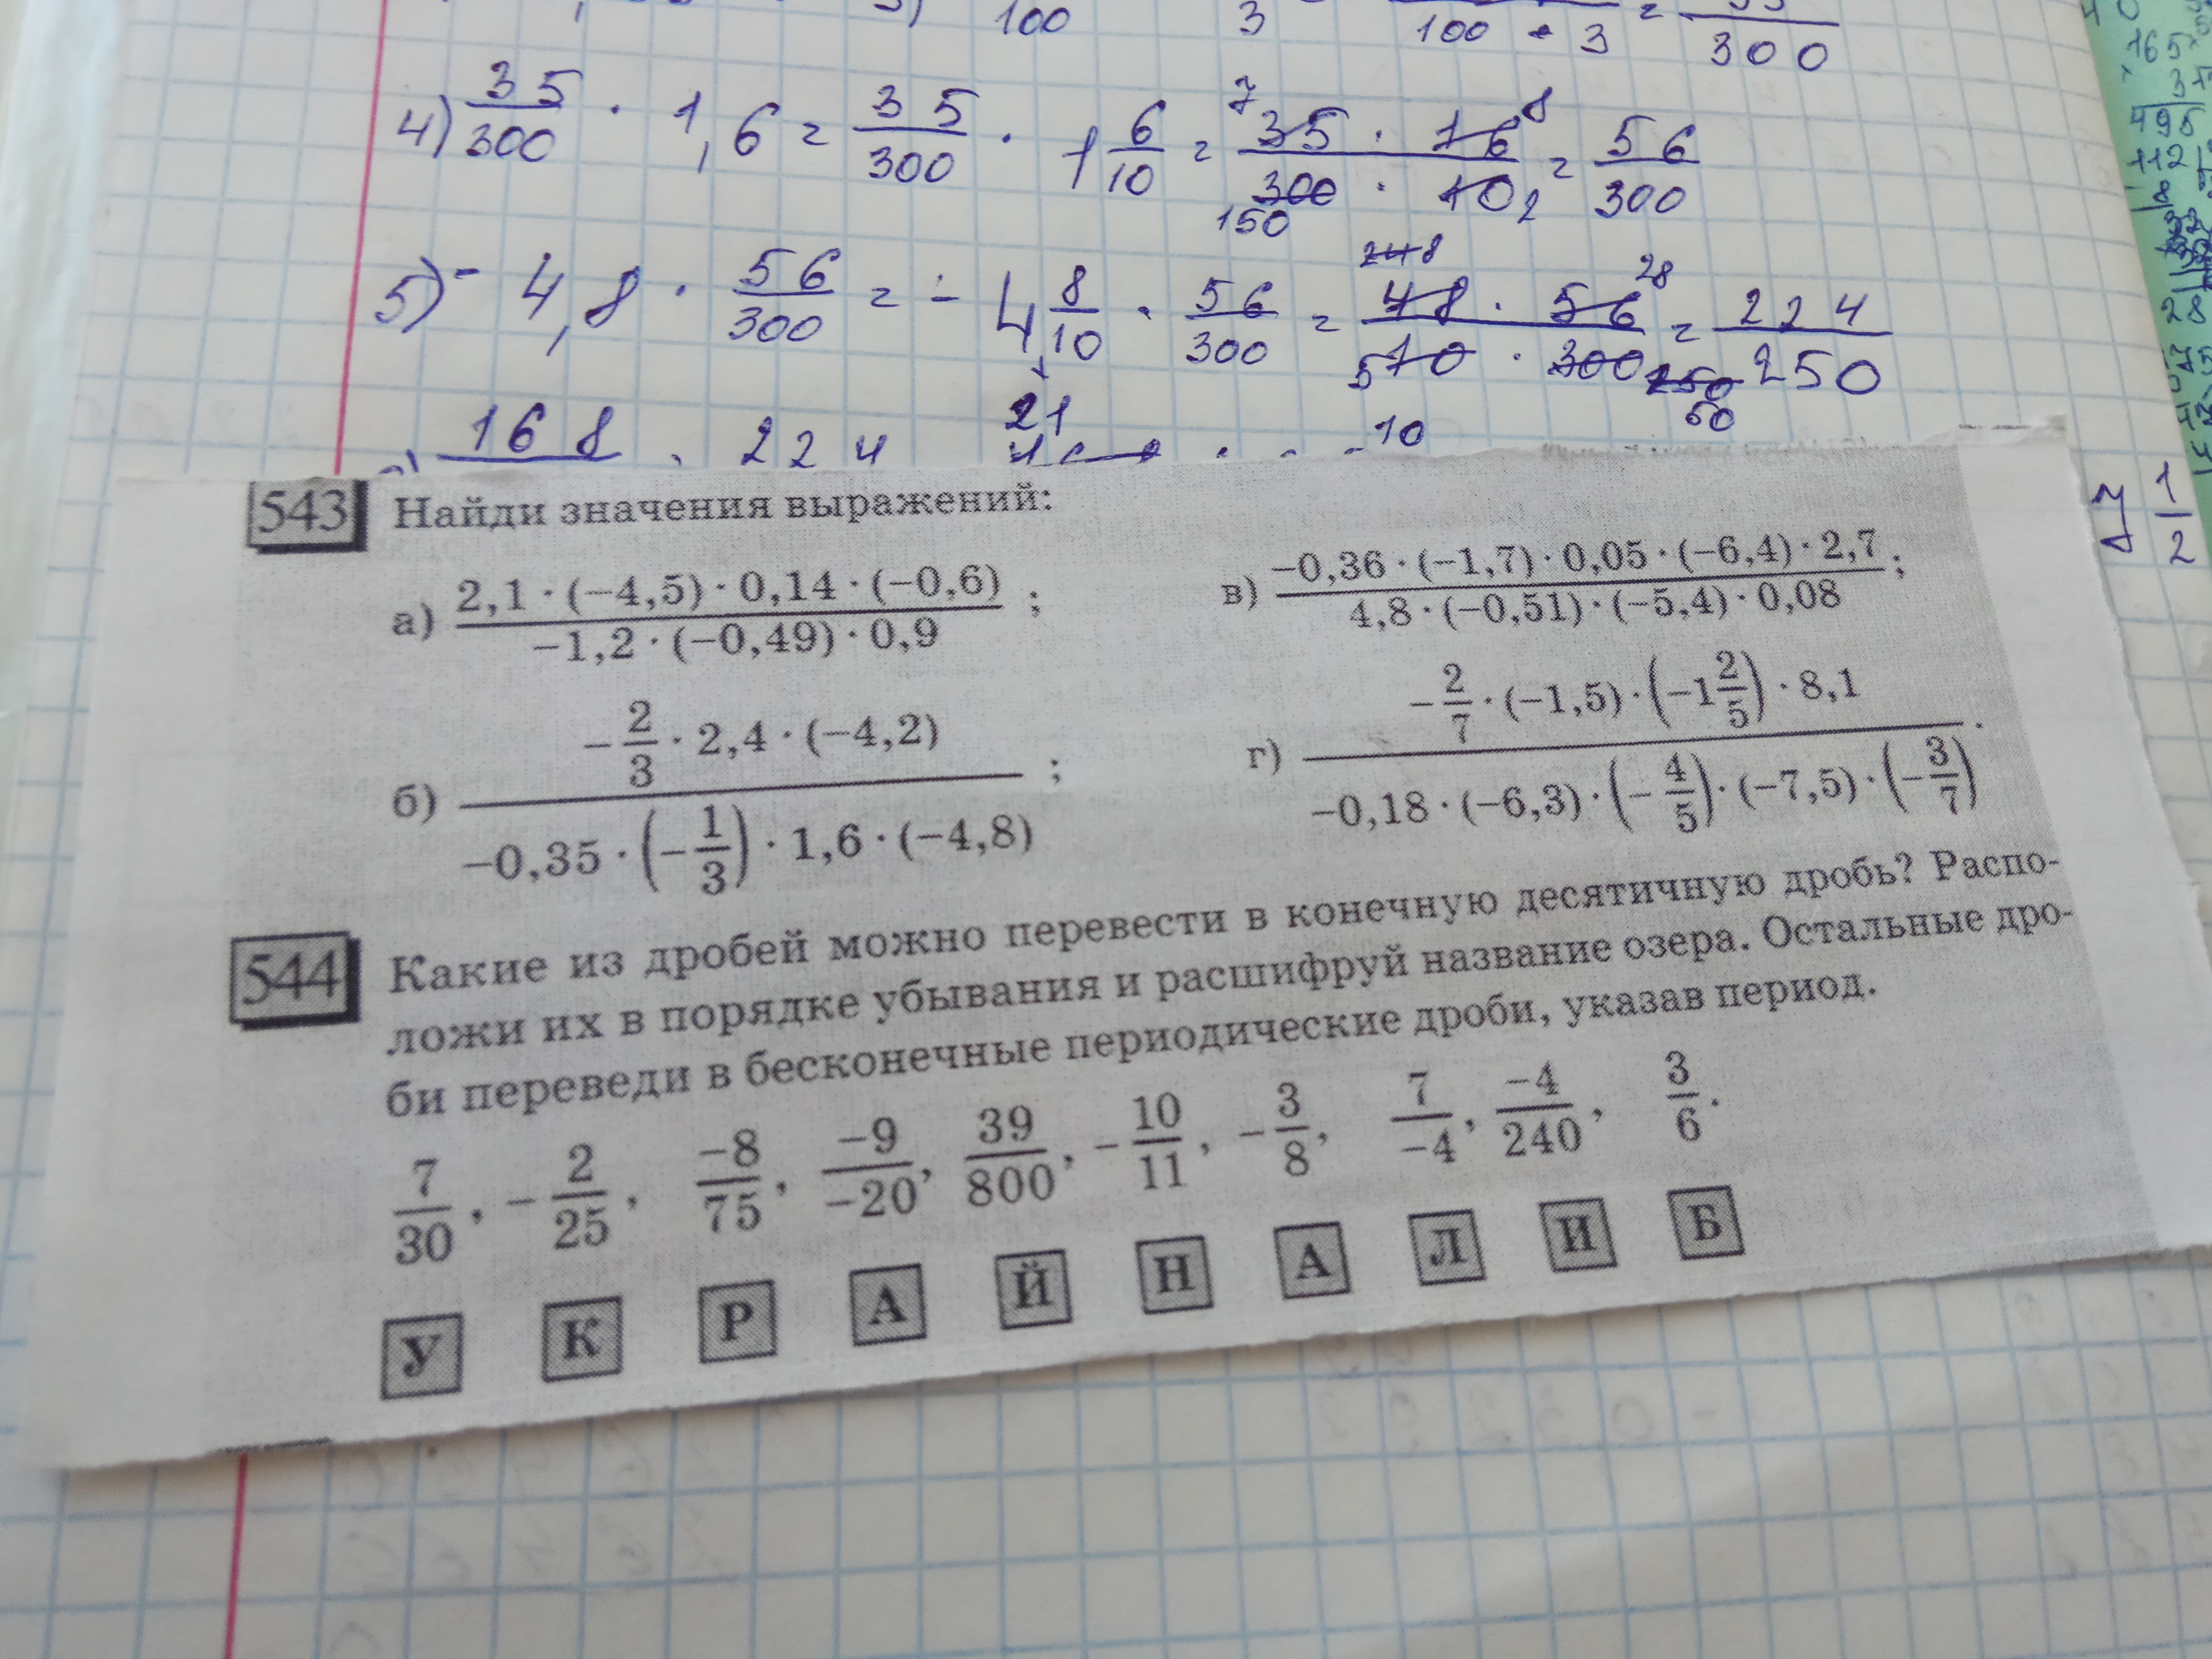 100 3 100 · 3 = 300
4) 35/300 · 1,6 = 35/300 · 1 6/10 = 35 · 16/300 · 10 = 56/300
7 8 150 2
5) - 4,8 · 56/300 = - 4 8/10 · 56/300 = 48 · 56/10 · 300 = 224/250
28 5 50
168 · 224 21 10
165
495
112
1/2
543 Найди значения выражений:
а) 2,1 · (−4,5) · 0,14 · (−0,6)/−1,2 · (−0,49) · 0,9 ;
в) −0,36 · (−1,7) · 0,05 · (−6,4) · 2,7/4,8 · (−0,51) · (−5,4) · 0,08 ;
б) −2/3 · 2,4 · (−4,2)/−0,35 · (−1/3) · 1,6 · (−4,8) ;
г) −2/7 · (−1,5) · (−1 2/5) · 8,1/−0,18 · (−6,3) · (−4/5) · (−7,5) · (−3/7) .
544 Какие из дробей можно перевести в конечную десятичную дробь? Распо-
ложи их в порядке убывания и расшифруй название озера. Остальные дро-
би переведи в бесконечные периодические дроби, указав период.
7/30, −2/25, −8/75, −9/−20, 39/800, −10/11, −3/8, 7/−4, −4/240, 3/6.
У К Р А Й Н А Л И Б